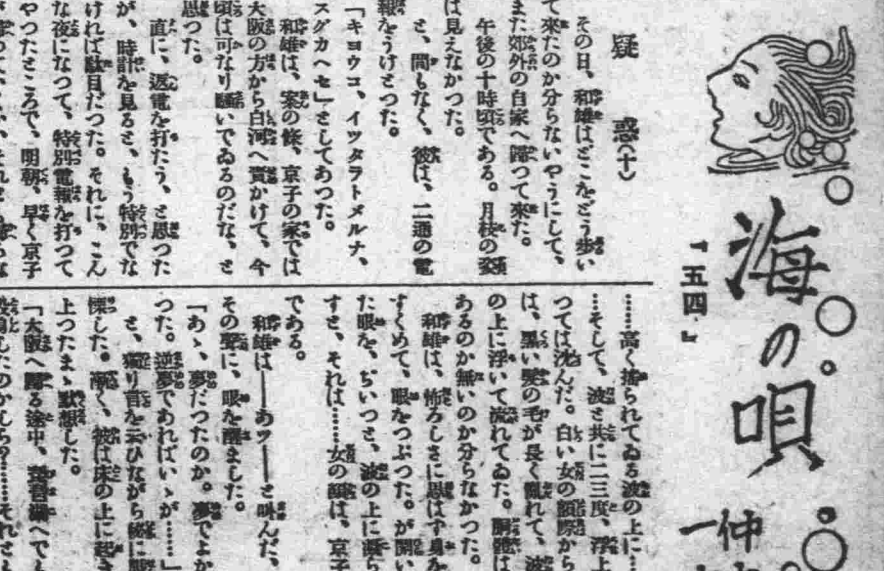 海の唄
「五四」
仲
一
疑惑(十)
その日、和雄はどこをどう歩い
て来たのか分らないやうにして、
また郊外の自家へ歸つて來た。
午後の十時頃である。月枝の姿
は見えなかつた。
と、間もなく、彼は、二通の電
報をうけとつた。
「キヨウコ、イツタラトメルナ、
スグカヘセ」としてあつた。
和雄は、案の條、京子の家では
大阪の方から白河へ貰かけて、今
頃は可なり騷いでゐるのだな、と
思つた。
直に、返電を打たう、と思つた
が、時計を見ると、もう特別でな
ければ駄目だつた。それに、こん
な夜になつて、特別電報を打つて
やつたところで、明朝、早く京子
……高く揺られてゐる波の上に…
…そして、波と共に二三度、浮上
つては沈んだ。白い女の額際から
は、黒い髪の毛が長く亂れて、波
の上に浮いて流れてゐた。胴體は
あるのか無いのか分らなかつた。
和雄は、怖ろしさに思はず身を
すくめて、眼をつぶつた。が開い
た眼を、ぢいつと、波の上に凝ら
すと、それは……女の顔は、京子
である。
和雄は――あツ――と叫んだ、
その聲に、眼を醒ました。
「あゝ、夢だつたのか。夢でよか
つた。逆夢であればいゝが……」
と、獨り言を云ひながら
慄した。漸く、彼は床の上に起き
上つたまゝ默想した。
「大阪へ歸る途中、琵琶湖へでも
したのかしら?……それとも